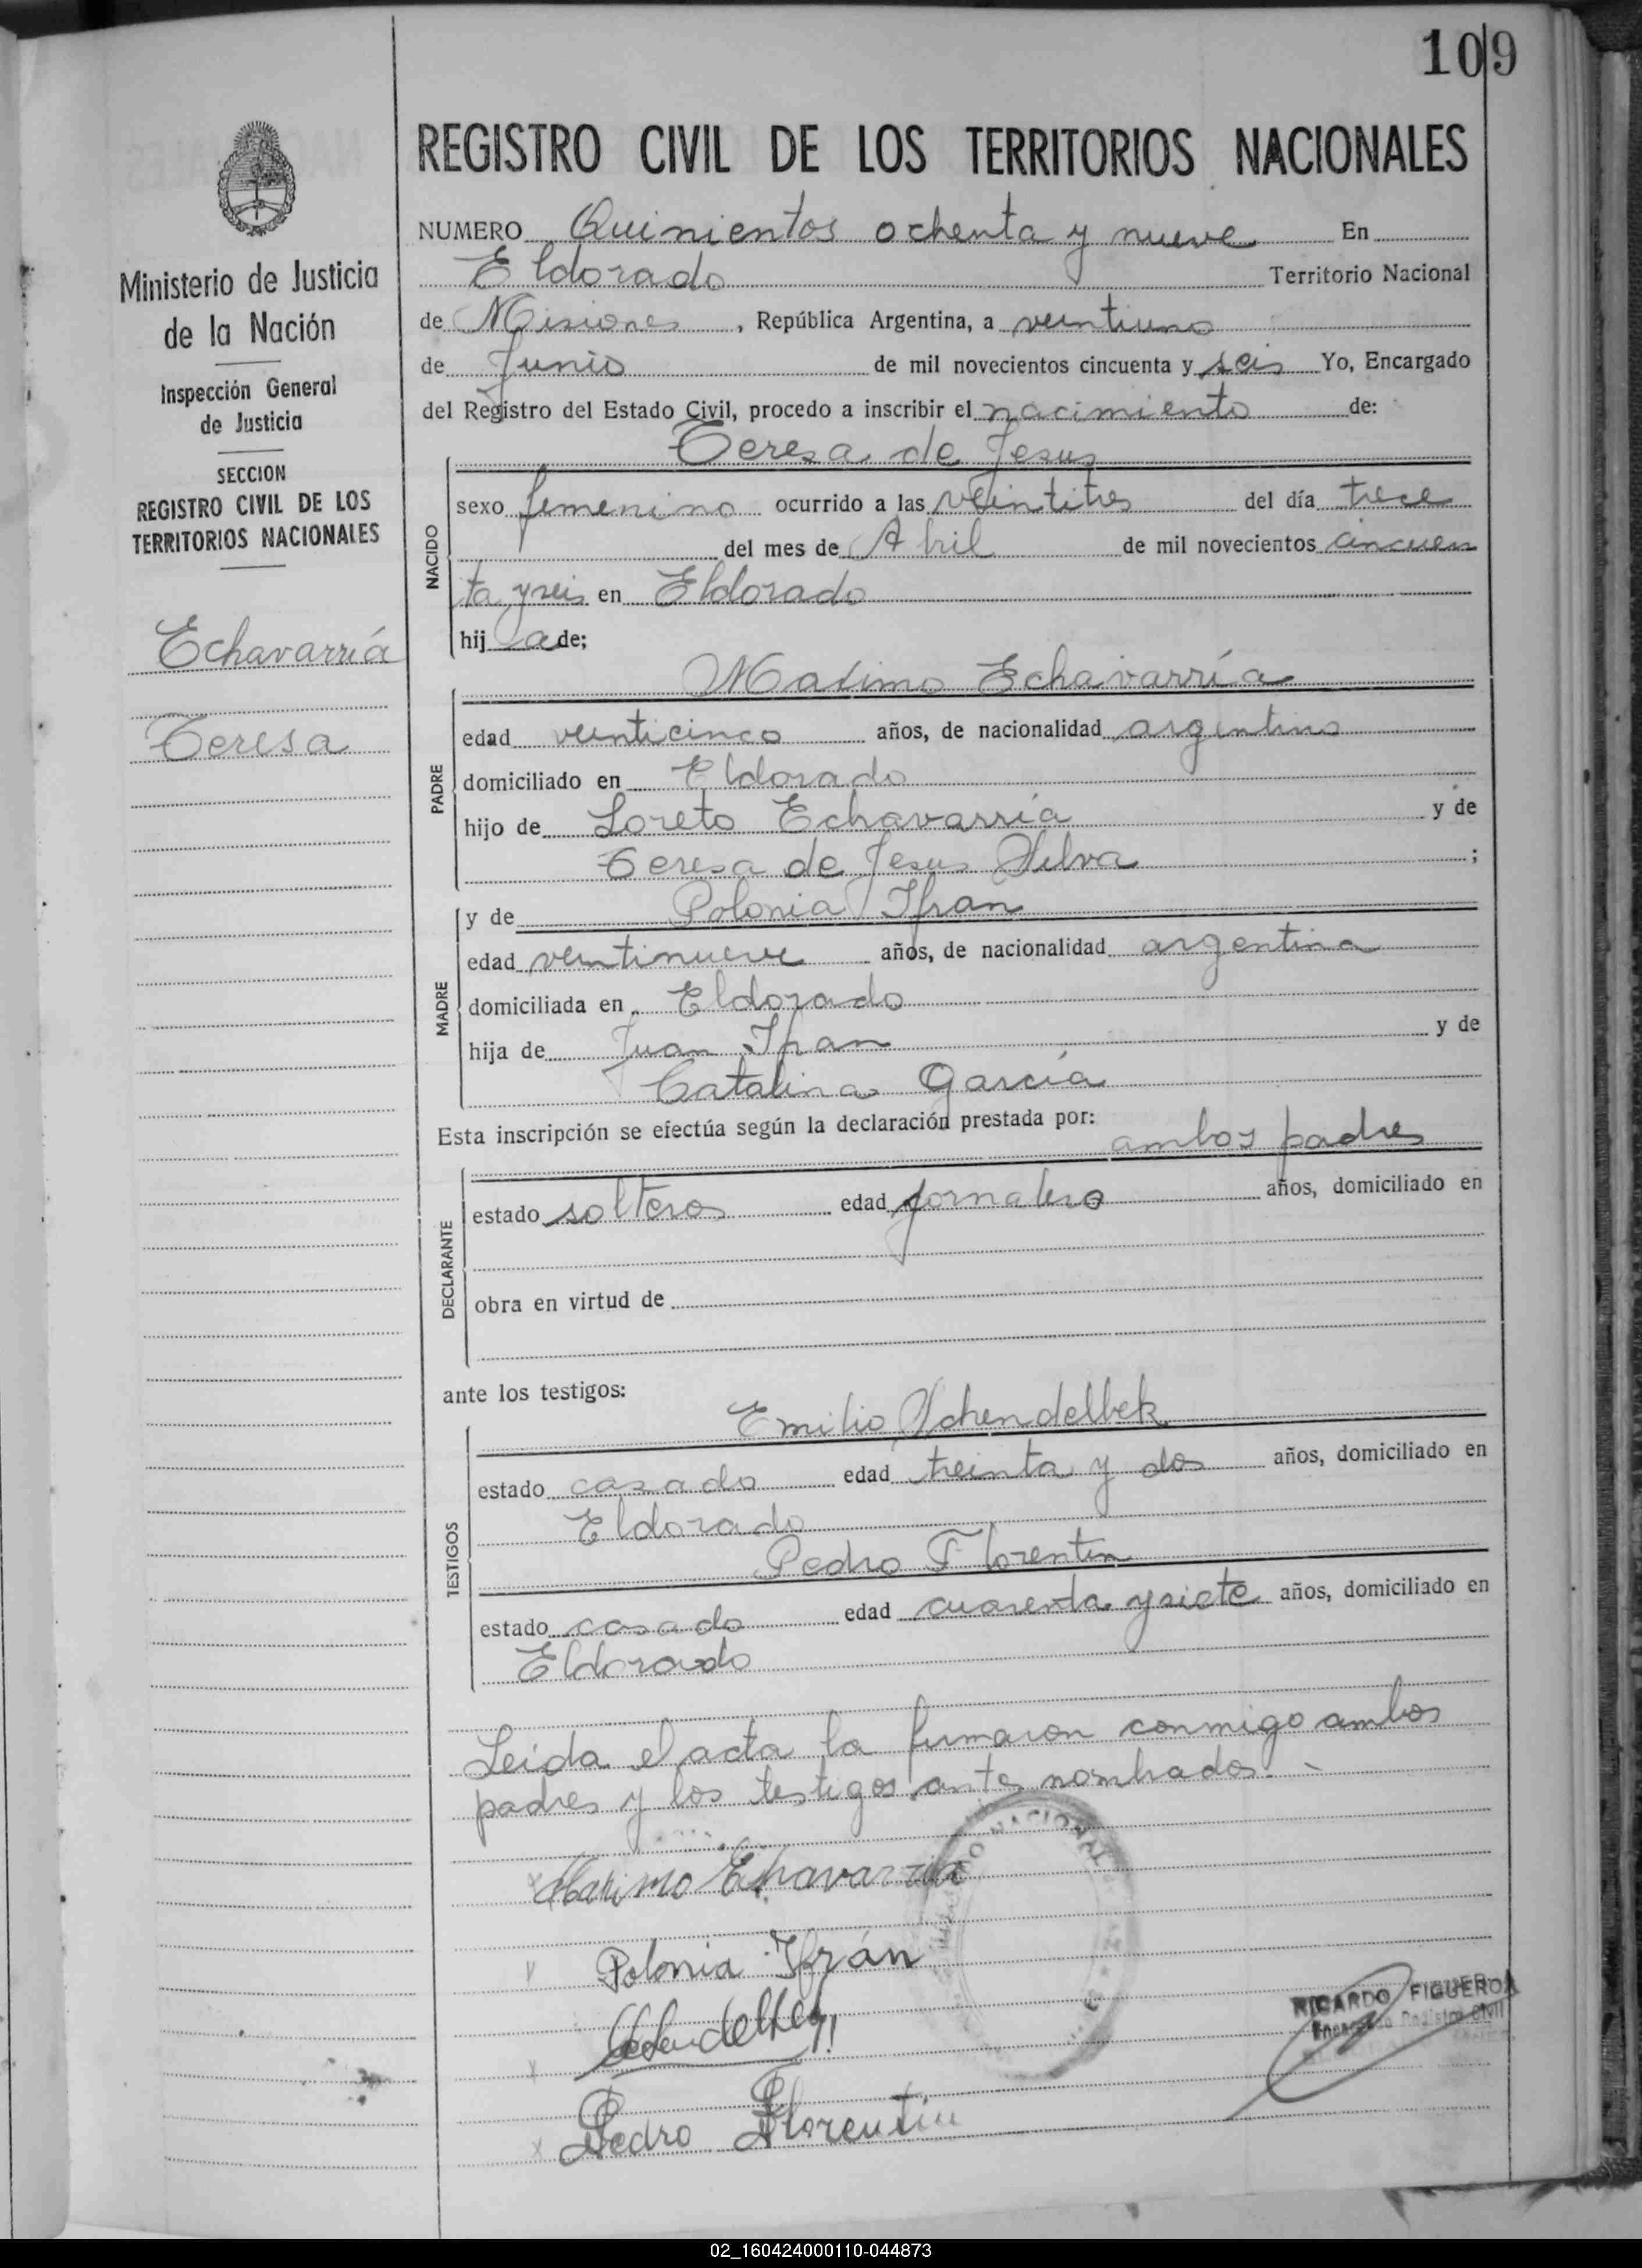 109
REGISTRO CIVIL DE LOS TERRITORIOS NACIONALES
Ministerio de Justicia
de la Nación
Inspección General
de Justicia
SECCION
REGISTRO CIVIL DE LOS
TERRITORIOS NACIONALES
Echavarría
Teresa
NUMERO Quinientos ochenta y nueve En
Eldorado Territorio Nacional
de Misiones, República Argentina, a veintiuno
de Junio de mil novecientos cincuenta y seis Yo, Encargado
del Registro del Estado Civil, procedo a inscribir el nacimiento de:
Teresa de Jesus
NACIDO
sexo femenino ocurrido a las veintitres del día trece
del mes de Abril de mil novecientos cincuen
ta y seis en Eldorado
hija de;
Maximo Echavarría
PADRE
edad veinticinco años, de nacionalidad argentino
domiciliado en Eldorado
hijo de Loreto Echavarría y de
Teresa de Jesus Silva ;
MADRE
y de Polonia Ifran
edad veintinueve años, de nacionalidad argentina
domiciliada en Eldorado
hija de Juan Ifran y de
Catalina García
Esta inscripción se efectúa según la declaración prestada por:
ambos padres
DECLARANTE
estado solteros edad jornalero años, domiciliado en
obra en virtud de
ante los testigos:
Emilio Schendelbek
TESTIGOS
estado casado edad treinta y dos años, domiciliado en
Eldorado
Pedro Florentin
estado casado edad cuarenta y siete años, domiciliado en
Eldorado
Leida el acta la firmaron conmigo ambos
padres y los testigos antes nombrados.-
Maximo Echavarria
Polonia Ifrán
Pedro Florentin
NACIONAL
RICARDO FIGUEROA
Encargado Registro Civil
02_160424000110-044873